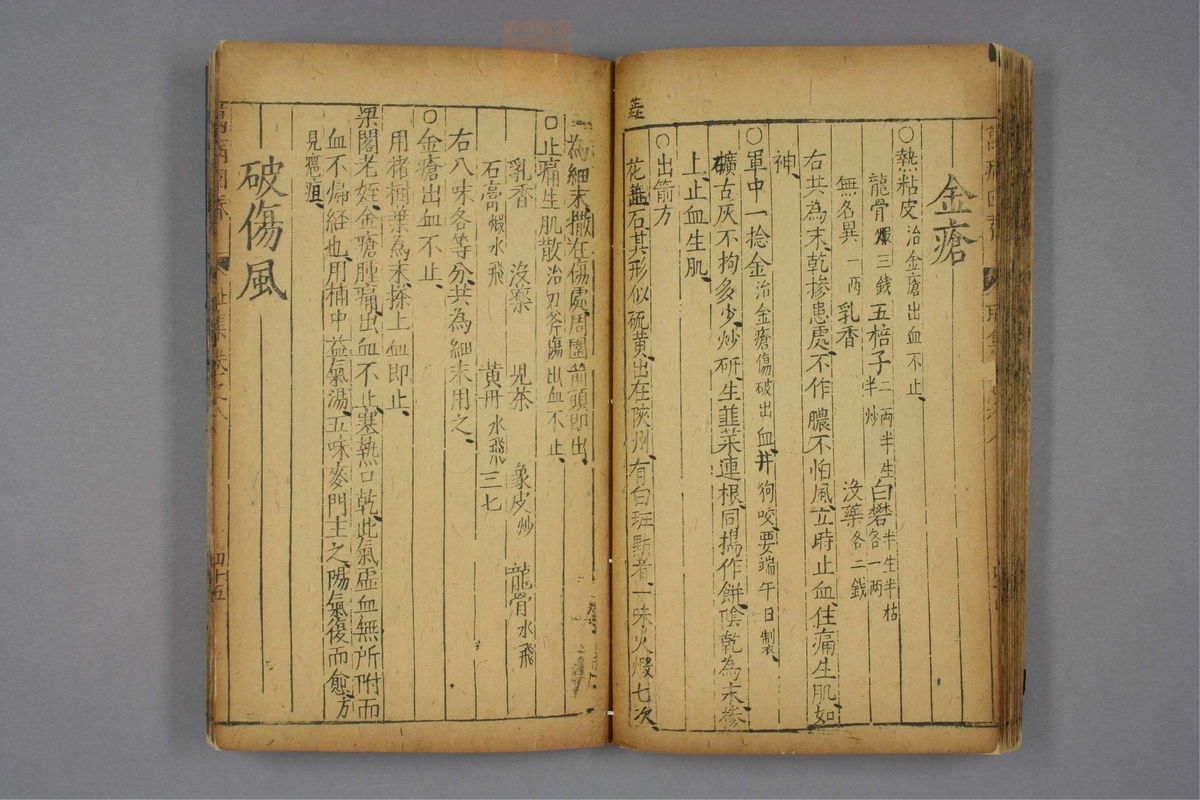 金瘡
○熱粘皮治金瘡出血不止
龍骨煆三錢五棓子二両半生半炒白礬半生半枯各一両
無名異一両乳香沒藥各二錢
右共為末乾摻患處不作膿不怕風立時止血住痛生肌如
神
○軍中一捻金治金瘡傷破出血并狗咬要端午日製
礦古灰不拘多少炒研生韮菜連根同搗作餅陰乾為末摻
上止血生肌
○出箭方
花蕋石其形似硫黄出在陜州有白斑點者一味火煆七次
為細末撒在傷處周圍箭頭即出
○止痛生肌散治刀斧傷出血不止
乳香沒藥児茶象皮炒龍骨水飛
石膏煆水飛黄丹水飛三七
右八味各等分共為細末用之
○金瘡出血不止
用楮樹葉為末搽上血即止
梁閣老姪金瘡腫痛出血不止寒熱口乾此氣虛血無所附而
血不帰経也用補中益氣湯五味麥門主之陽氣復而愈方
見癍疹
破傷風
四十五